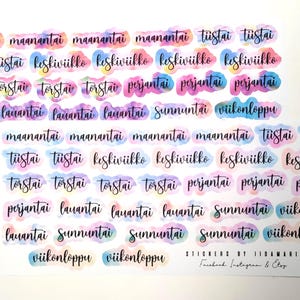 maanantai maanantai maanantai tiistai tiistai
keskiviikko keskiviikko keskiviikko
torstai torstai perjantai perjantai perjantai
lauantai lauantai lauantai sunnuntai viikonloppu
maanantai maanantai maanantai maanantai tiistai
tiistai tiistai keskiviikko keskiviikko keskiviikko
tiistai torstai torstai torstai perjantai perjantai
perjantai lauantai lauantai lauantai sunnuntai sunnuntai
sunnuntai sunnuntai sunnuntai sunnuntai
viikonloppu viikonloppu
STICKERS BY IIDAMARI
Facebook Instagram & Etsy